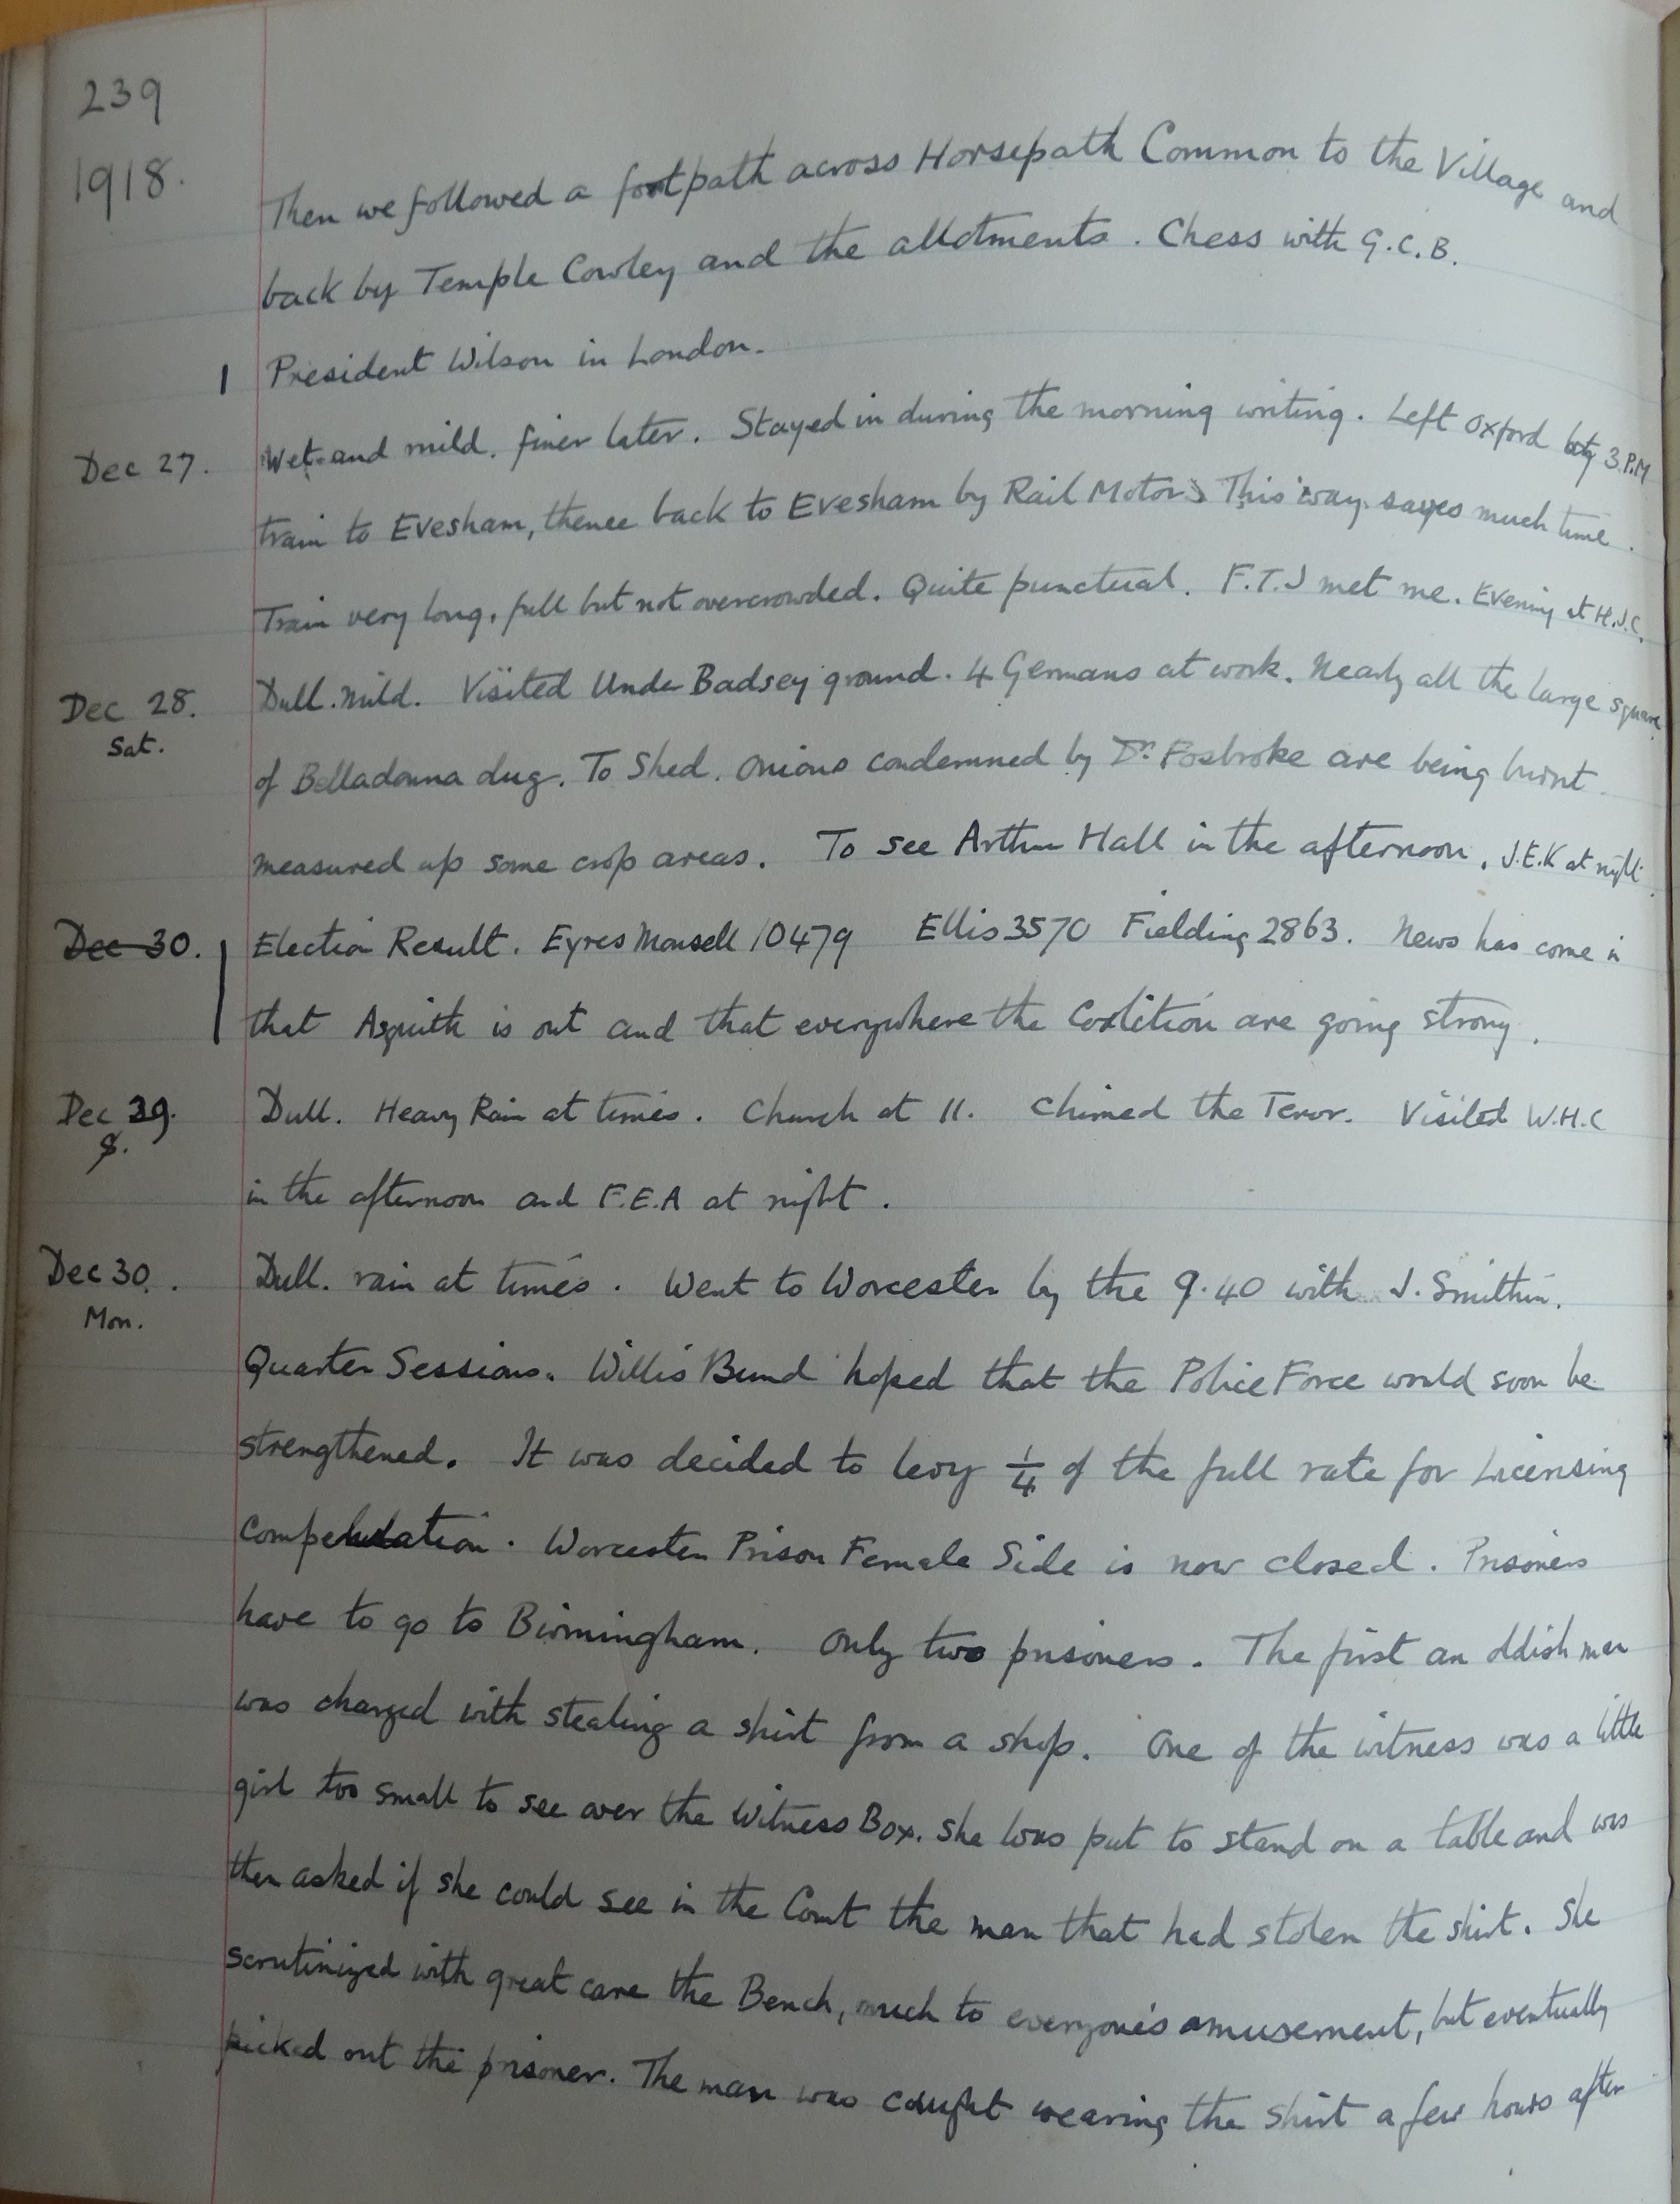 239
1918.
Then we followed a footpath across Horsepath Common to the Village and
back by Temple Cowley and the allotments. Chess with G.C.B.
President Wilson in London.
Dec 27. Wet and mild. finer later. Stayed in during the morning writing. Left Oxford by 3 P.M
train to Evesham, thence back to Evesham by Rail Motor. This way saves much time.
Train very long, full but not overcrowded. Quite punctual. F.T.J met me. Evening at H.J.C.
Dec 28. Sat. Dull. mild. Visited Under Badsey ground. 4 Germans at work. Nearly all the large square
of Belladonna dug. To Shed. Onions condemned by Dr. Fosbroke are being burnt.
measured up some crop areas. To see Arthur Hall in the afternoon. J.E.K at night.
Dec 30. Election Result. Eyres Monsell 10479 Ellis 3570 Fielding 2863. News has come in
that Asquith is out and that everywhere the Coalition are going strong.
Dec 29. S. Dull. Heavy Rain at times. Church at 11. Chimed the Tenor. Visited W.H.C
in the afternoon and F.E.A at night.
Dec 30. Mon. Dull. rain at times. Went to Worcester by the 9.40 with J. Smithin.
Quarter Sessions. Willis Bund hoped that the Police Force would soon be
strengthened. It was decided to levy 1/4 of the full rate for Licensing
compensation. Worcester Prison Female Side is now closed. Prisoners
have to go to Birmingham. Only two prisoners. The first an oldish man
was charged with stealing a shirt from a shop. One of the witness was a little
girl too small to see over the Witness Box. She was put to stand on a table and was
then asked if she could see in the Court the man that had stolen the shirt. She
scrutinized with great care the Bench, much to everyone's amusement, but eventually
picked out the prisoner. The man was caught wearing the shirt a few hours after